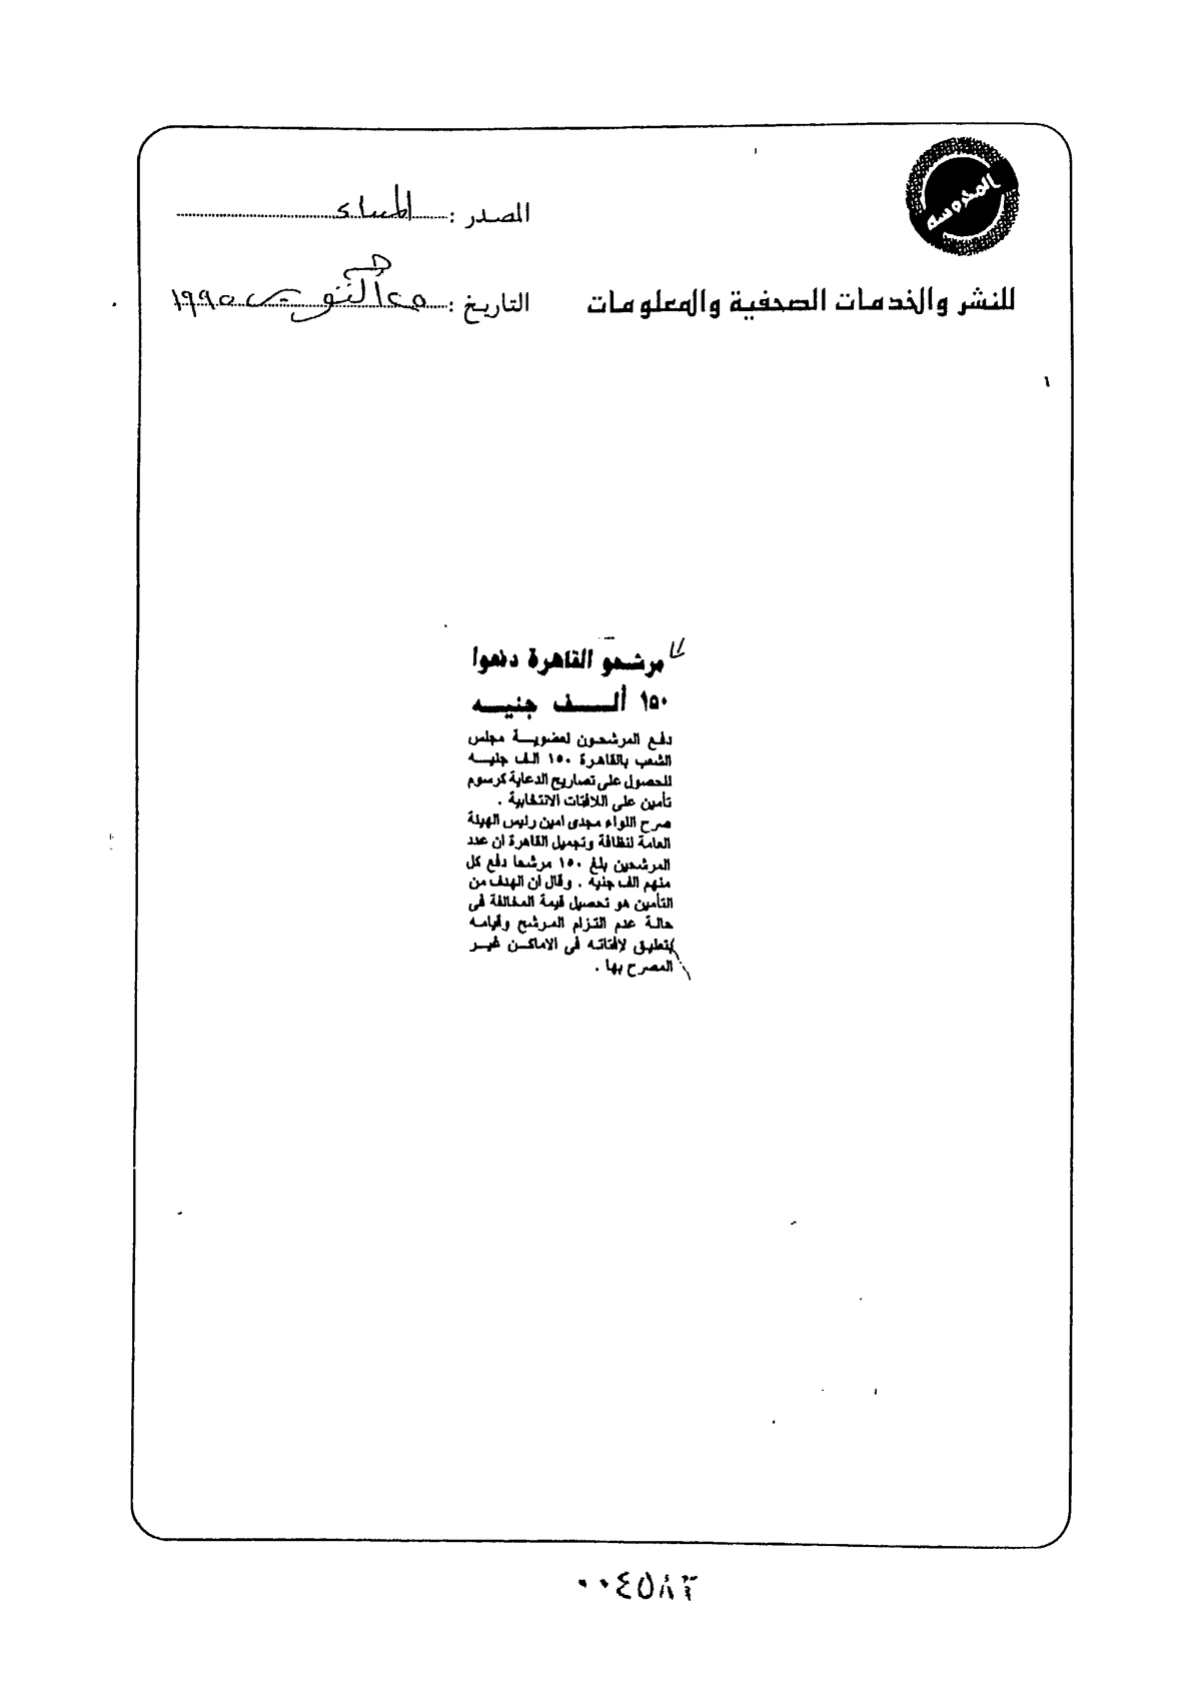 المحروسة
المصدر : المساء
للنشر والخدمات الصحفية والمعلومات
التاريخ : ٢٥ أكتوبر ١٩٩٥
مرشحو القاهرة دفعوا
١٥٠ ألف جنيه
دفع المرشحون لعضوية مجلس
الشعب بالقاهرة ١٥٠ الف جنيه
للحصول على تصاريح الدعاية كرسوم
تأمين على اللافتات الانتخابية .
صرح اللواء مجدى امين رئيس الهيئة
العامة لنظافة وتجميل القاهرة ان عدد
المرشحين بلغ ١٥٠ مرشحا دفع كل
منهم الف جنيه . وقال ان الهدف من
التأمين هو تحصيل قيمة المخالفة فى
حالة عدم التزام المرشح وقيامه
بتعليق لافتاته فى الاماكن غير
المصرح بها .
٠٠٤٥٨٣